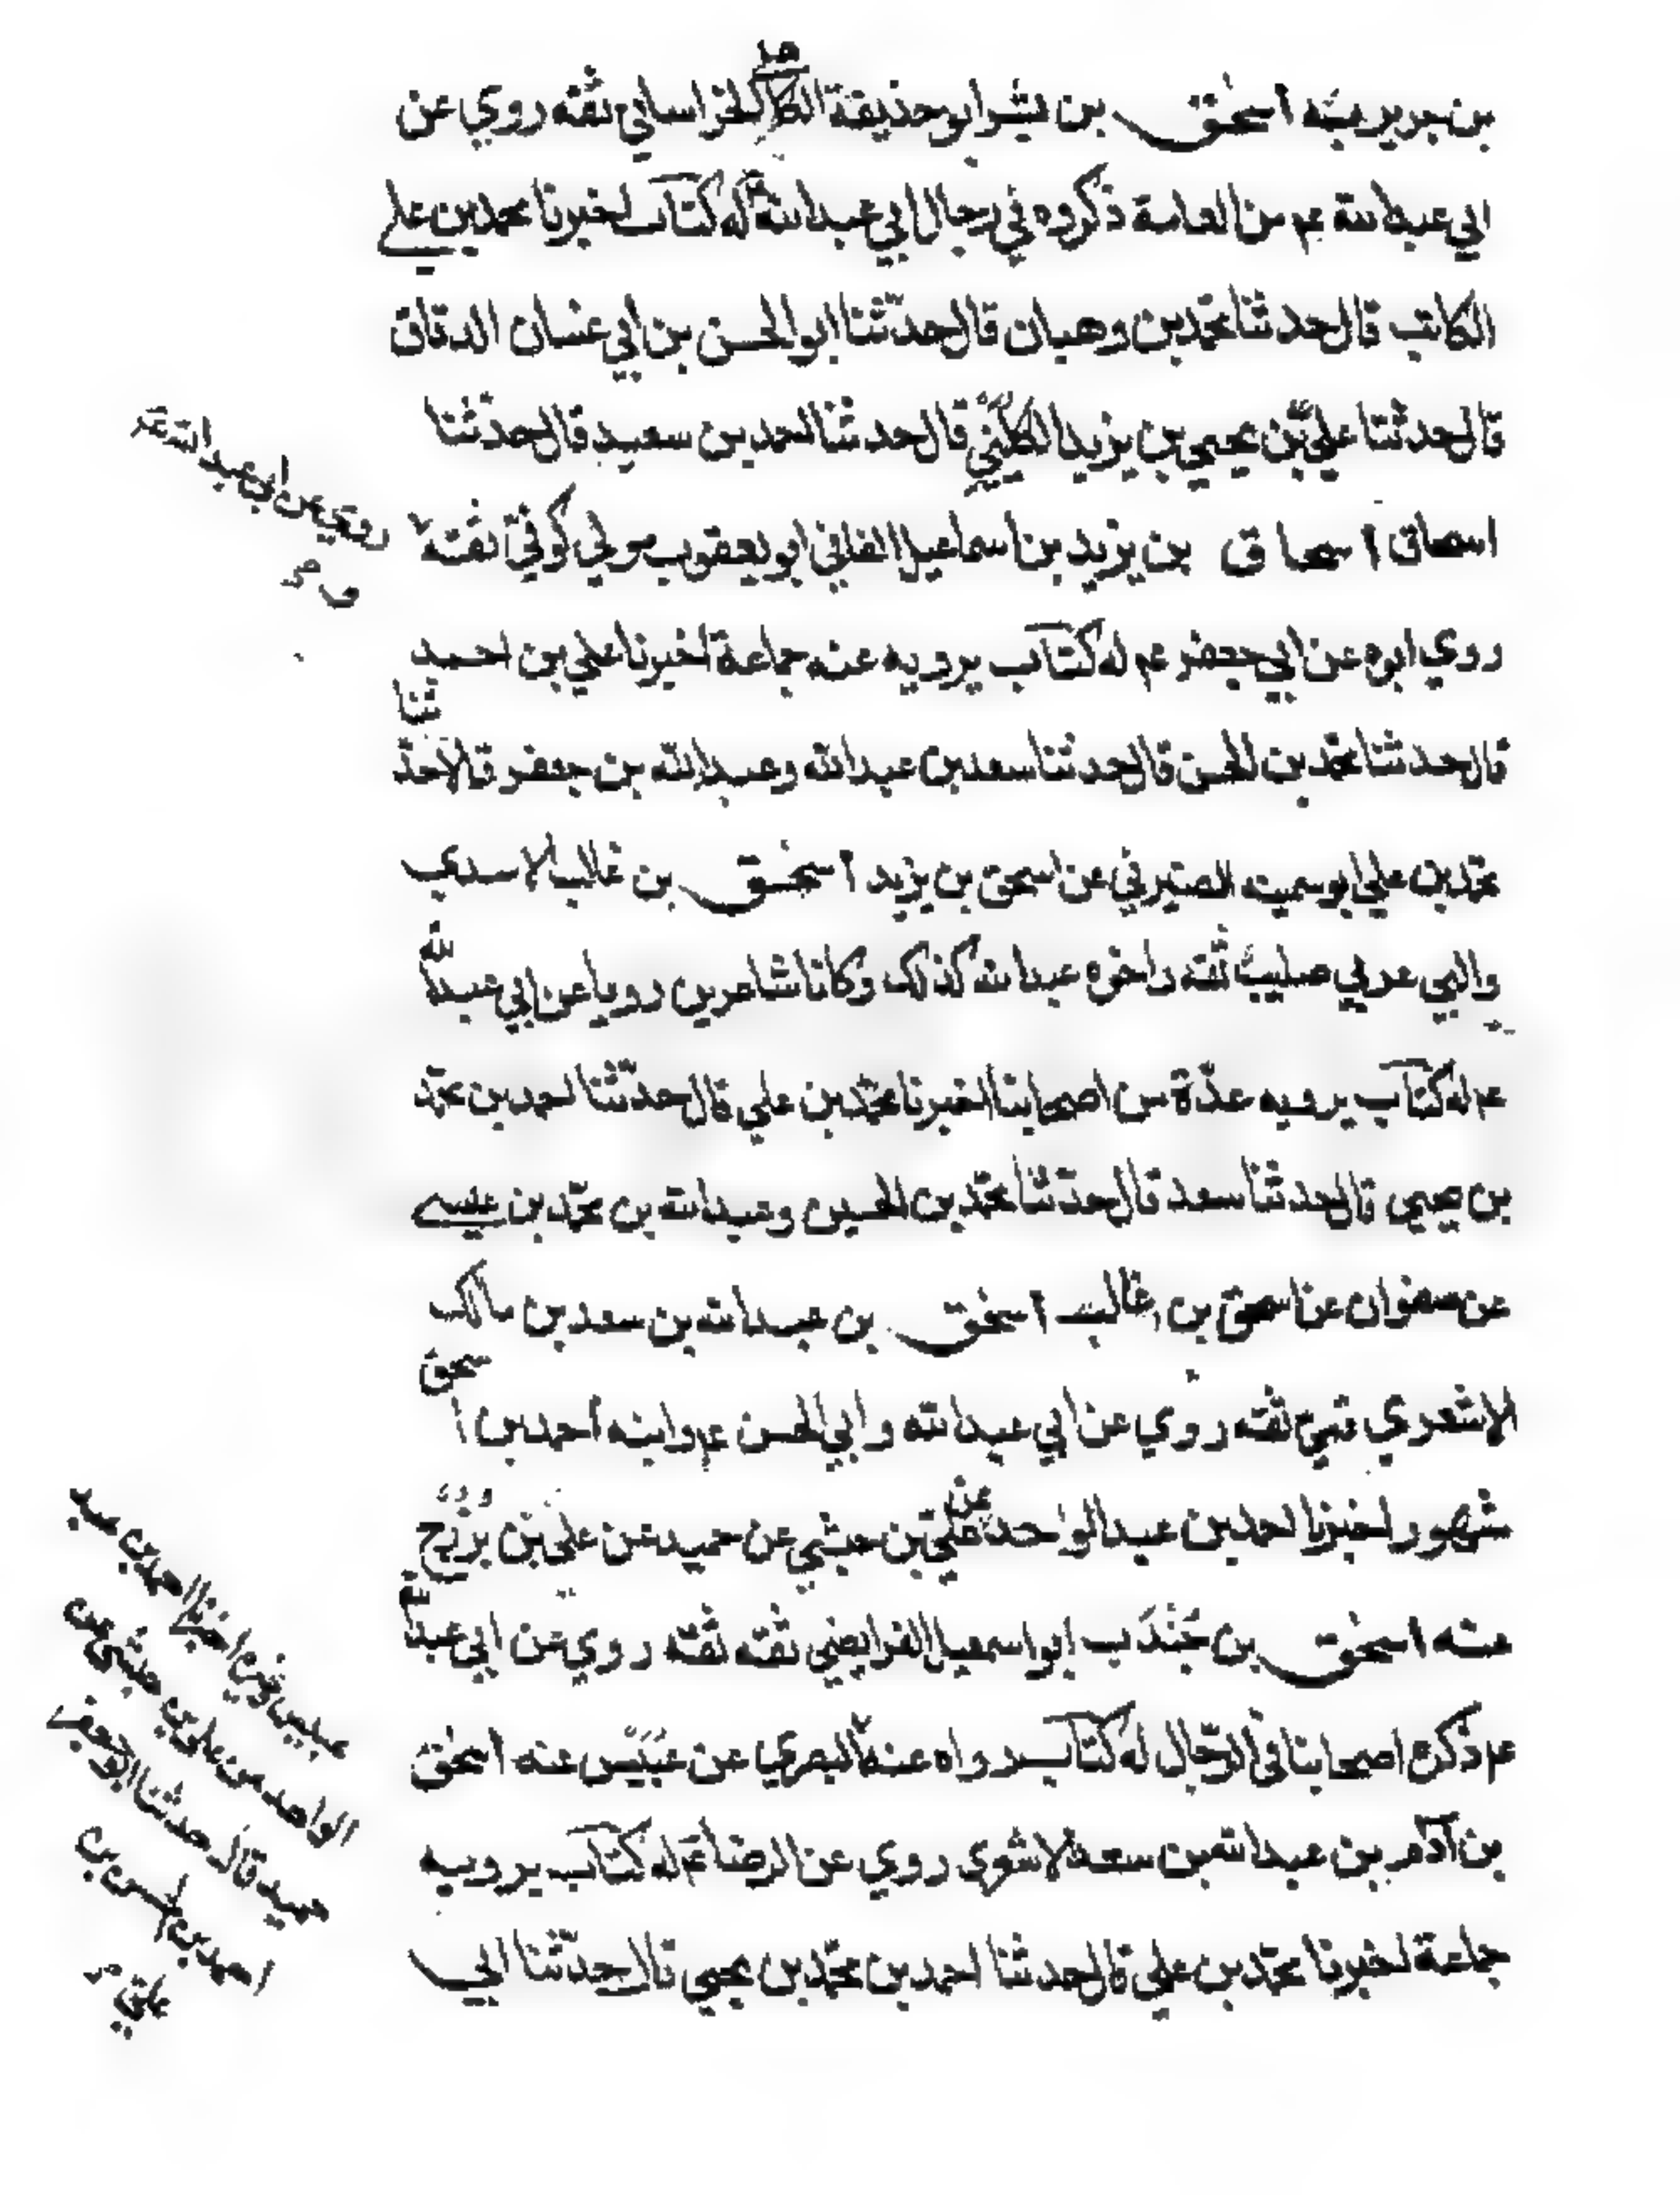 بن جرير به اسحق بن بشر ابو حذيفة الكاهلي الخراساني ثقه روي عن
ابي عبد الله عم من العامة ذكروه في رجال ابي عبد الله له كتاب اخبرنا محمد بن علي
الكاتب قال حدثنا محمد بن وهبان قال حدثنا ابو الحسن بن ابي غسان الدقاق
قال حدثنا علي بن يحيي بن يزيد قال حدثنا احمد بن سعيد قال حدثنا
اسحاق اسحاق بن يزيد بن اسماعيل الطائي ابو يعقوب مولي كوفي ثقة
روي عن ابي عبد الله عم
و صح
روي ابوه عن ابي جعفر عم له كتاب يرويه عنه جماعة اخبرنا علي بن احمد
قال حدثنا محمد بن الحسن قال حدثنا سعد بن عبد الله وعبد الله بن جعفر قالا حدثنا
محمد بن علي ابو سمينه الصيرفي عن اسحق بن يزيد اسحق بن غالب الاسدي
والبي عربي صليب ثقه واخوه عبد الله كذلك وكانا شاعرين رويا عن ابي عبد الله
عم له كتاب يرويه عدّة من اصحابنا اخبرنا محمد بن علي قال حدثنا احمد بن محمد
بن يحيي قال حدثنا سعد قال حدثنا محمد بن الحسين وعبد الله بن محمد بن عيسي
عن صفوان عن اسحق بن غالب اسحق بن عبد الله بن سعد بن مالك
الاشعري قمي ثقه روي عن ابي عبد الله وابي الحسن عم وابنه احمد بن اسحق
شهور اخبرنا احمد بن عبد الواحد عن علي بن حبشي عن حميد عن علي بن بزرج
عنه اسحق بن جندب ابو اسمعيل الفرايضي ثقه ثقه روي عن ابي عبد الله
عم ذكره اصحابنا في الرجال له كتاب رواه عنه البصري عن عبيس عنه اسحق
عبيس وغيره اخبرنا احمد بن عبد
الواحد عن علي بن حبشي عن
حميد قال حدثنا ابو جعفر
احمد بن الحسن بن
علي صح
بن آدم بن عبد الله بن سعد الاشعري روي عن الرضا عم له كتاب يرويه
جماعة اخبرنا محمد بن علي قال حدثنا احمد بن محمد بن يحيي قال حدثنا ابي